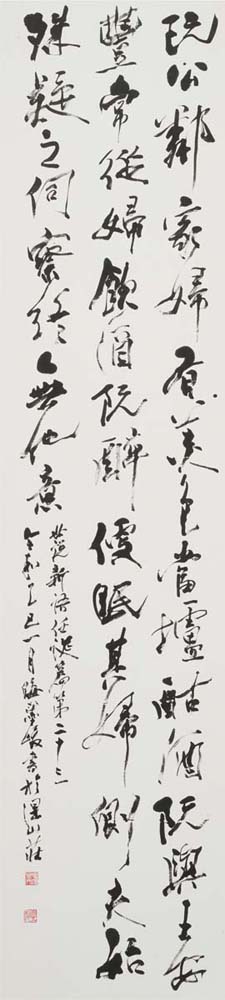 阮公鄰家婦有美色當壚酤酒阮與王安
豐常從婦飲酒阮醉便眠其婦側夫始
殊疑之伺察終無他意
世說新語任誕篇第二十三
令和乙巳一月晦書於深山莊